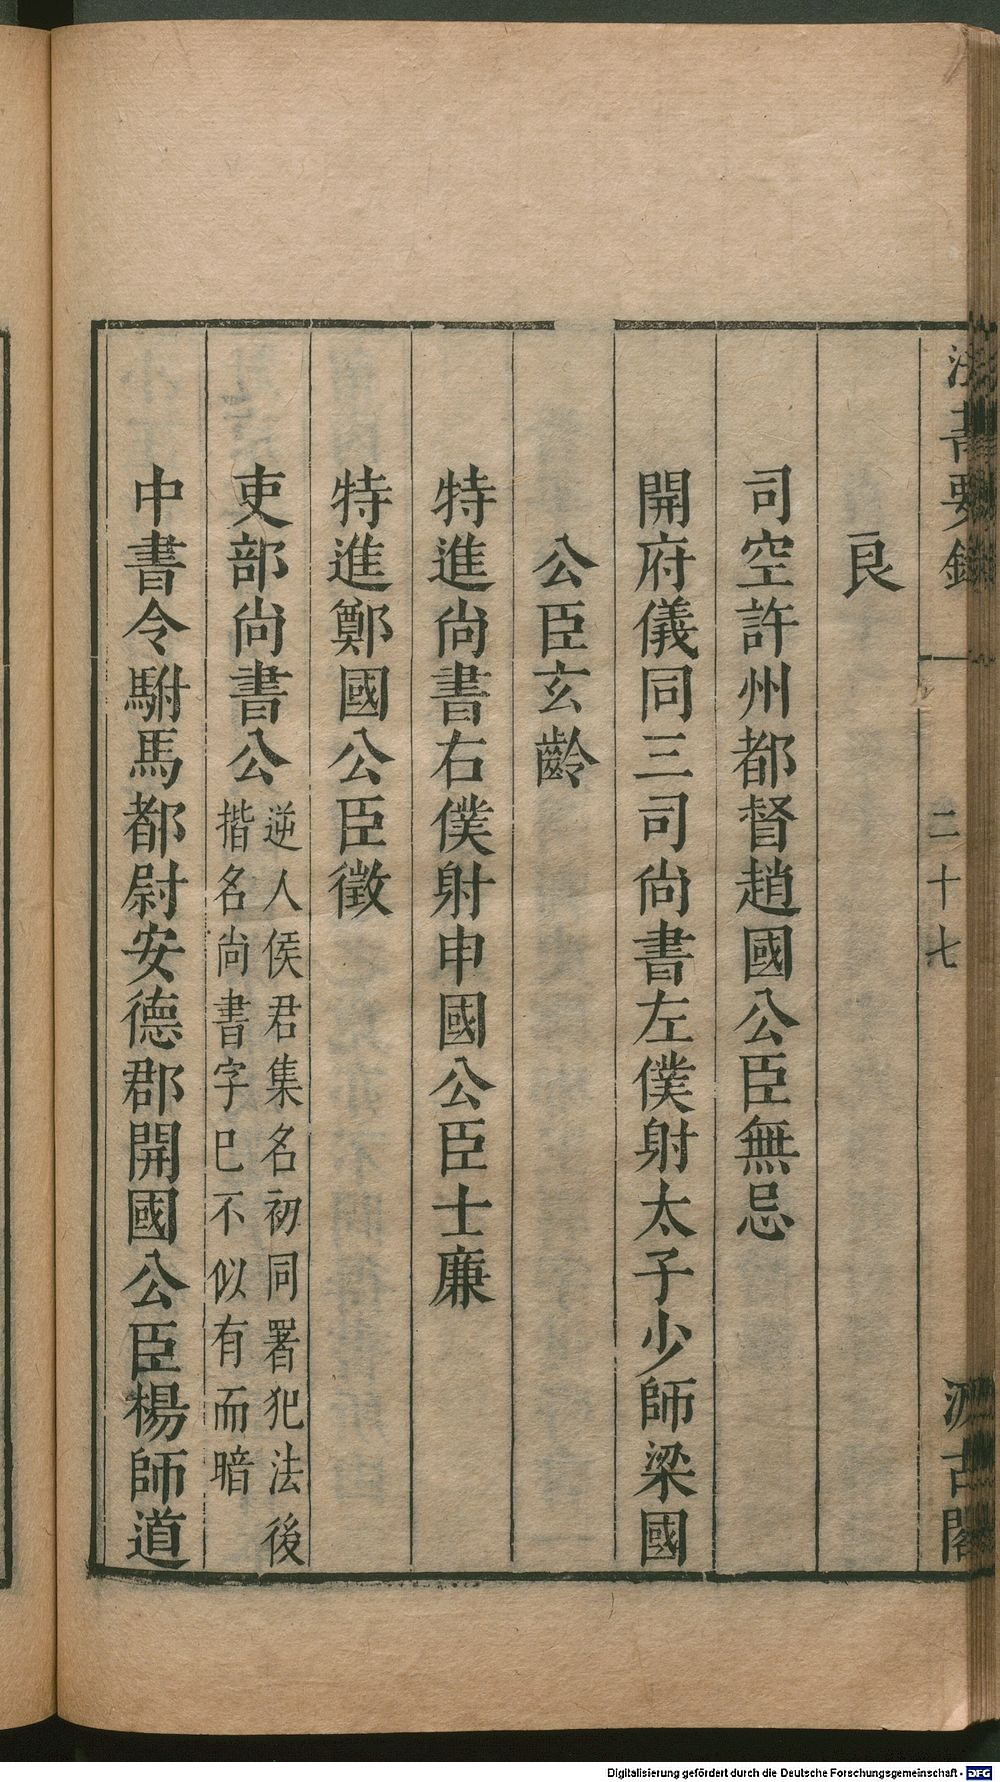 法書要錄
二十七
汲古閣
良
司空許州都督趙國公臣無忌
開府儀同三司尚書左僕射太子少師梁國
公臣玄齡
特進尚書右僕射申國公臣士廉
特進鄭國公臣徵
吏部尚書公
逆人侯君集名初同署犯法後
揩名尚書字巳不似有而暗
中書令駙馬都尉安德郡開國公臣楊師道
Digitalisierung gefördert durch die Deutsche Forschungsgemeinschaft - DFG